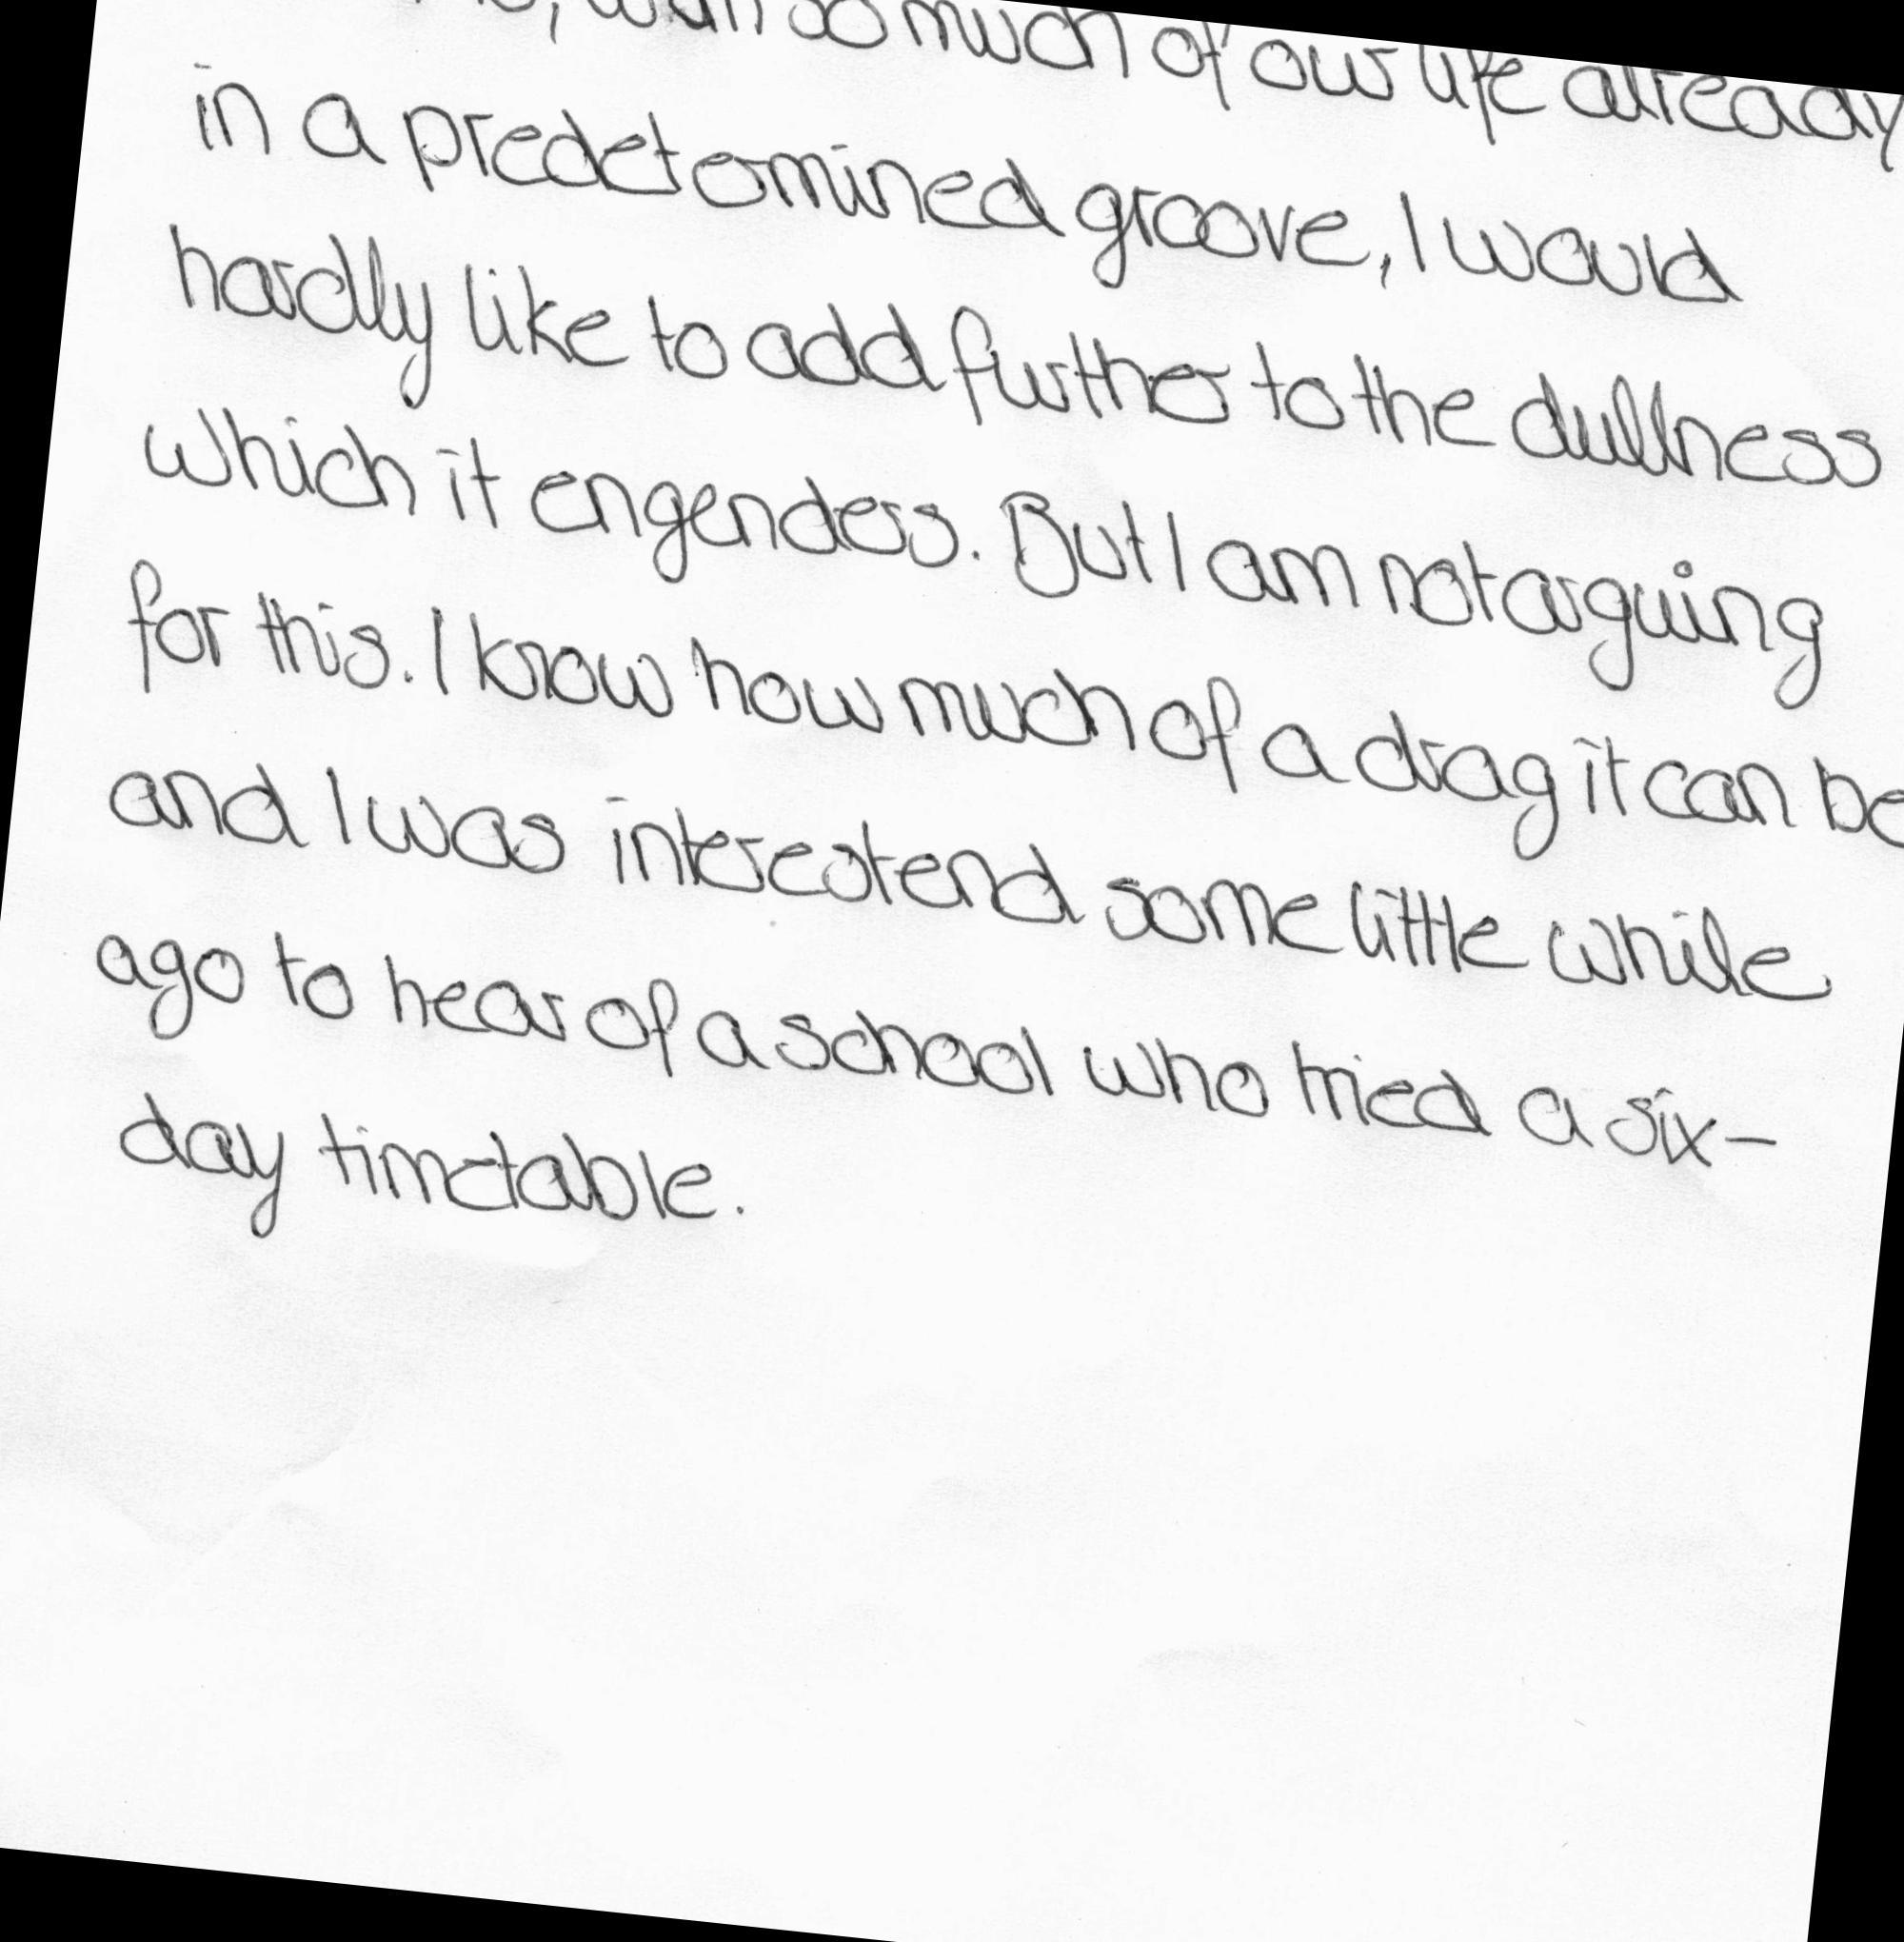 with so much of our life already
in a predetermined groove, I would
hardly like to add further to the dullness
which it engenders. But I am not arguing
for this. I know how much of a drag it can be
and I was interestend some little while
ago to hear of a school who tried a six-
day timetable.